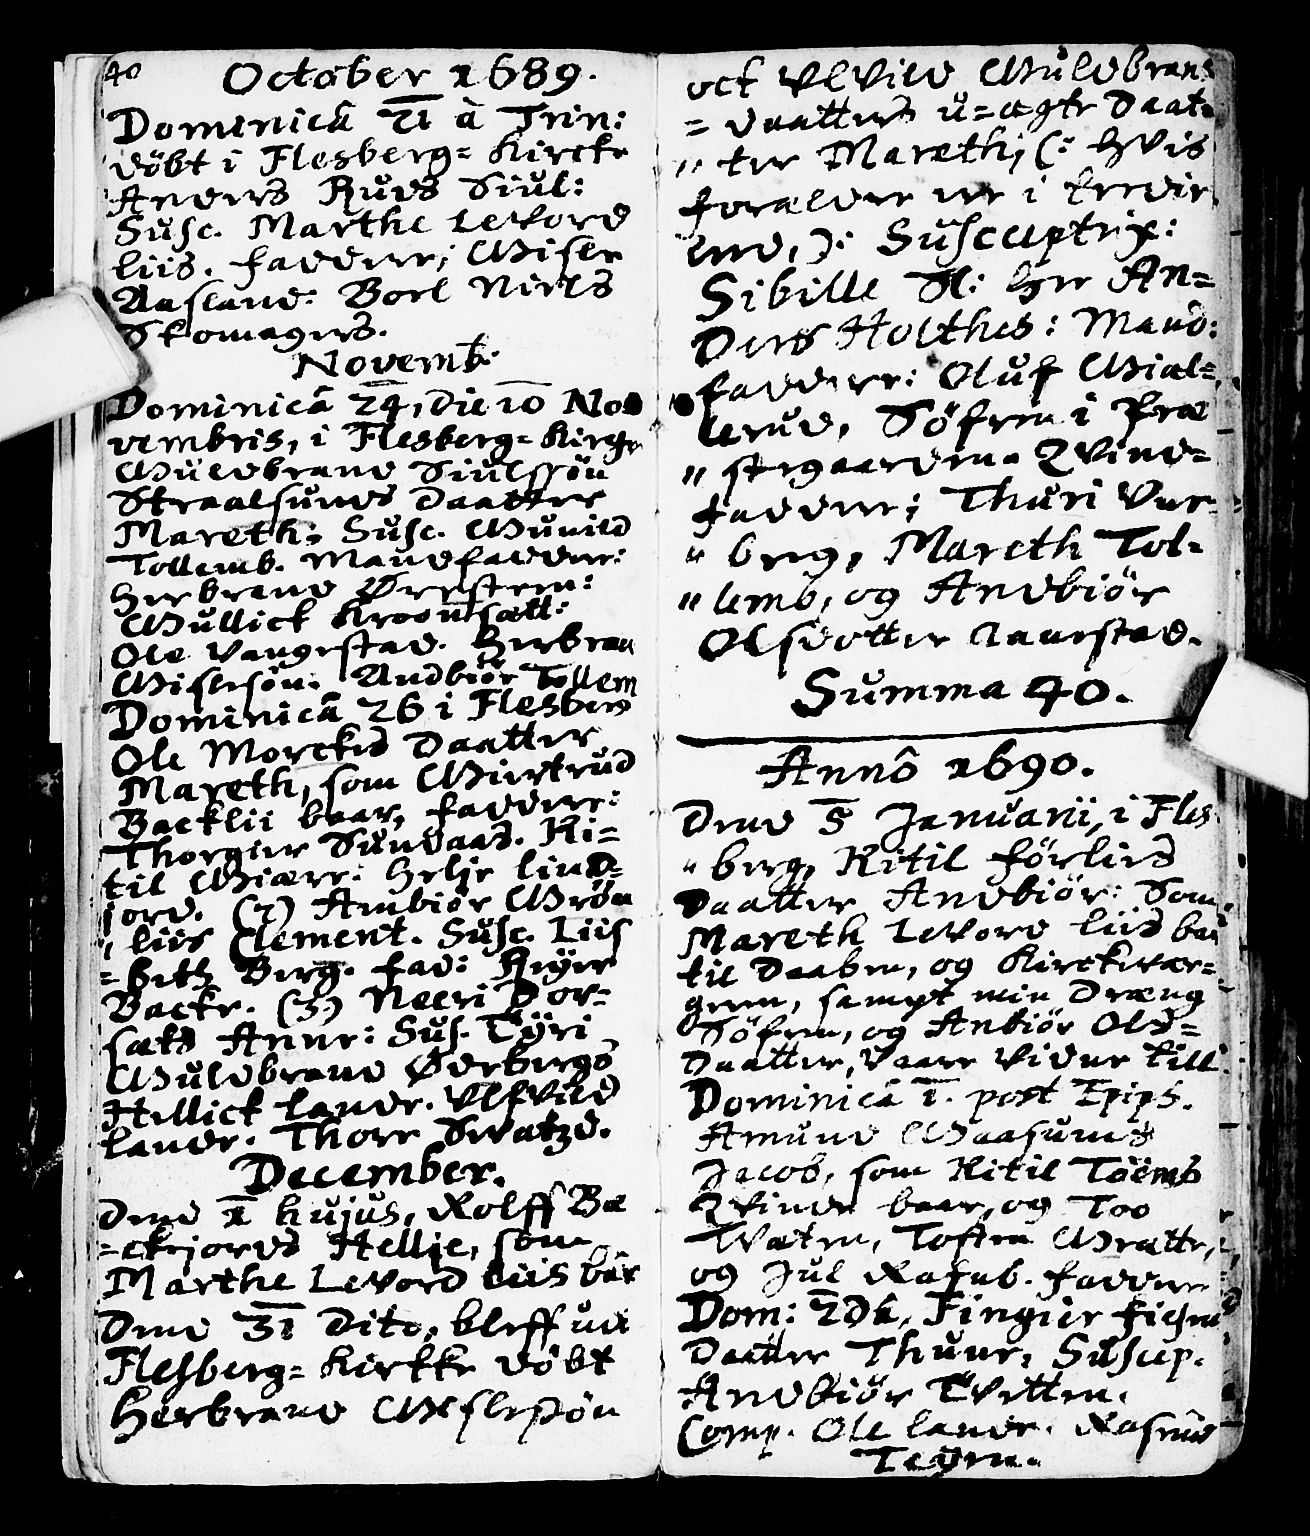 40
October 1689.
Dominicâ 21 à Trin:
döbt i Flesberg= Kircke
Anders Ruds Siul:
Susc. Marthe Levord
liis. faddere; Gisle
Aasland: Boel Niels
Skomagers.
Novemb:
Dominicâ 24, die 10 No
vembris, i Flesberg= Kirge
Guldbrand Siulssön
Straalsunds Daatter
Mareth; Susc. Gunild
Tollemb. Mandfaddere:
Herbrand
Gullick
Ole Vangestad. Herbran
Gislesön. Andbiör Tollem
Dominicâ 26 i Flesberg
Ole Morckes Daatter
Mareth, som Giertrud
Backlii baar, faddere:
Thorgier Sundaas. Ki=
til Giære: Helje lind=
jord. (2) Anbiör Grön
liis Clement. Susc. Liis
=beth Berg. fad: Reÿer
Backe. (3.) Neeri Dor=
sæts Anne: Sus. Tÿri
Guldbrand Øderbergs
Hellick lande. Ulfvild
lande. Thore Svatzs.
December.
Dend 1 hujus, Rolff Bæ
=ckejords Hellje, som
Marthe Levord liis bar
Dend 31 Dito, bleff udi
Flesberg= Kircke döbt
Herbrand Gislesön
oct Ulvild Guldbrans
= daatters u=ægte Daat
" ter Mareth; (: hvis
forælder er i tredie
leed, :) Susceptrix:
Sibille Sl: her An=
Ders Holthes: Mand:
faddere: Oluf Giæl=
lerud, Söfren i Præ
" stegaarden. Qvind=
faddere; Thuri Ver
" berg, Mareth Tol=
" lemb, og Andbiör
Olsdotter Laurstad.
Summa 40.
Annô 1690.
Dend 5 Januarii, i Fles
" berg, Kitil förlies
Daatter Andbiör: Som
Mareth Levord liis bar
til Daaben, og Kirckevær=
geren, sampt min Dræng
Söfren, og Anbiör Ols=
Daatter, vaare vidne till.
Dominicâ 1. post Epips.
Amund Gaasunds
Jacob, som Kitil Töemb
Qvinde baar, og Too
Waten, Tosten Grætte,
og Jul faddere
Dom: 2dâ, Fingier
Daatter Thuur, Suscep.
Andbiör Tvetten.
Comp. Ole lande. Rasmus
Teÿen.